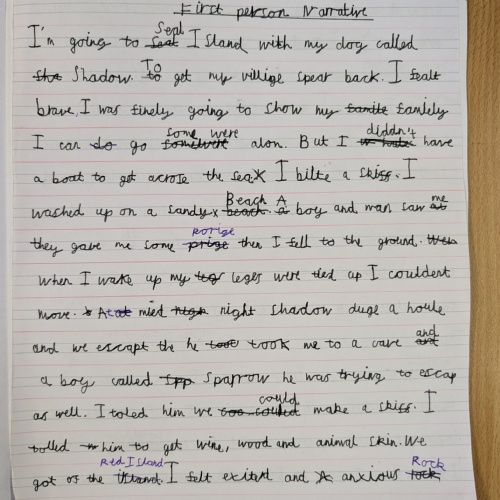 First person Narrative
I'm going to Seal Island with my dog called
Shadow. To get my villige spear back. I fealt
brave, I was finely going to show my familely
I can go some were alon. But I diddn't have
a boat to get across the sea. I bilte a skiff. I
washed up on a sandy Beach A boy and man saw me
they gave me some porige then I fell to the ground.
when I wake up my leges were tied up I couldent
move. At mied night shadow duge a houle
and we escapt the he took me to a cave and
a boy called Sparrow he was trying to escap
as well. I toled him we could make a skiff. I
tolled him to get wine, wood and animal skin. We
got of the Red Island. I felt exited and anxious Rock